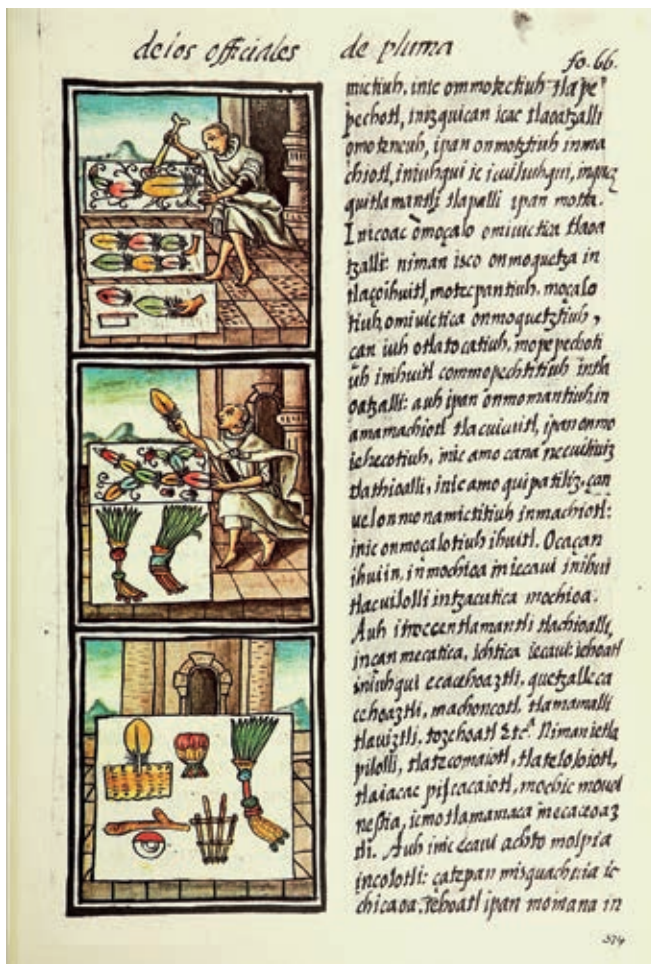 de los officiales de pluma
fo. 66.
mictiuh, inic ommotectiuh tlape
pechotl, inizquican icac tlaoatzalli
omoteneuh, ipan onmotztiuh inma
chiotl, iniuhqui ic icuiliuhqui,
quitlamantli tlapalli ipan motta.
Inicoac omoçalo omiuictica tlaoa
tzalli: niman isco onmoquetza in
tlaçoihuitl, motecpantiuh. moçalo
tiuh, omiuictica onmoquetztiuh,
can iuh otlatocatiuh, mopepechoti
uh imihuitl commopechtitiuh intla
oatzalli: auh ipan onmomantiuh, in
amamachiotl tlacuicuitl, ipan onmo
iehecotiuh, inic amo cana necuiliuiz
tlachioalli, inic amo quipatiliz, çan
uel onmonamictitiuh inmachiotl:
inic onmoçalotiuh ihuitl. Ocaçan
ihuiin, inmochioa in iecaui inihui
tlacuilolli intzacutica mochioa.
Auh itroccentlamantli tlachioalli,
incan mecatica, ichtica iecaui: iehoatl
iniuhqui ecacehoaztli, quetzalleca
cehoaztli, machoncotl, tlamamalli
tlauiztli. tozehoatl &c.ª Niman ietla
pilolli, tlatecomaiotl, tlateloloiotl,
tlaiacac pilcacaiotl, mochic
nestia, icmotlamamaca in ecaceoaz
tli. Auh inic ecaui achto molpia
incolotli: çatepan mixquachuia ic
chicaoa. Iehoatl ipan momana in
574